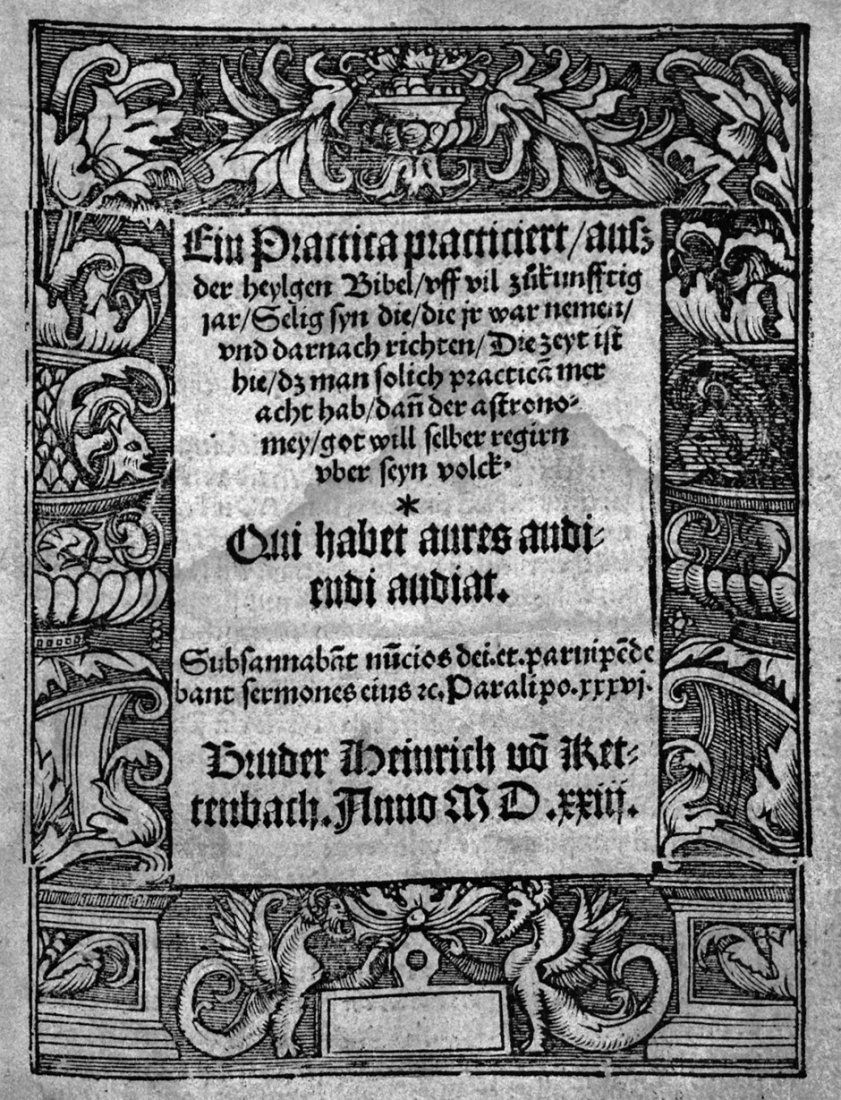 Ein Practica practiciert/ausz
der heylgen Bibel/vff vil zůkunfftig
jar/Selig syn die/die jr war nemen/
vnd darnach richten/Die zeyt ist
hie/dz man solich practicā mer
acht hab/dañ der astrono⸗
mey/got will selber regirn
vber seyn volck.
*
Qui habet aures audi⸗
endi audiat.
Subsannabāt nūcios dei.et.paruipēde
bant sermones eius ⁊c.Paralipo.xxxvj.
Bruder Heinrich vō Ket⸗
tenbach.Anno M D .xxiij.